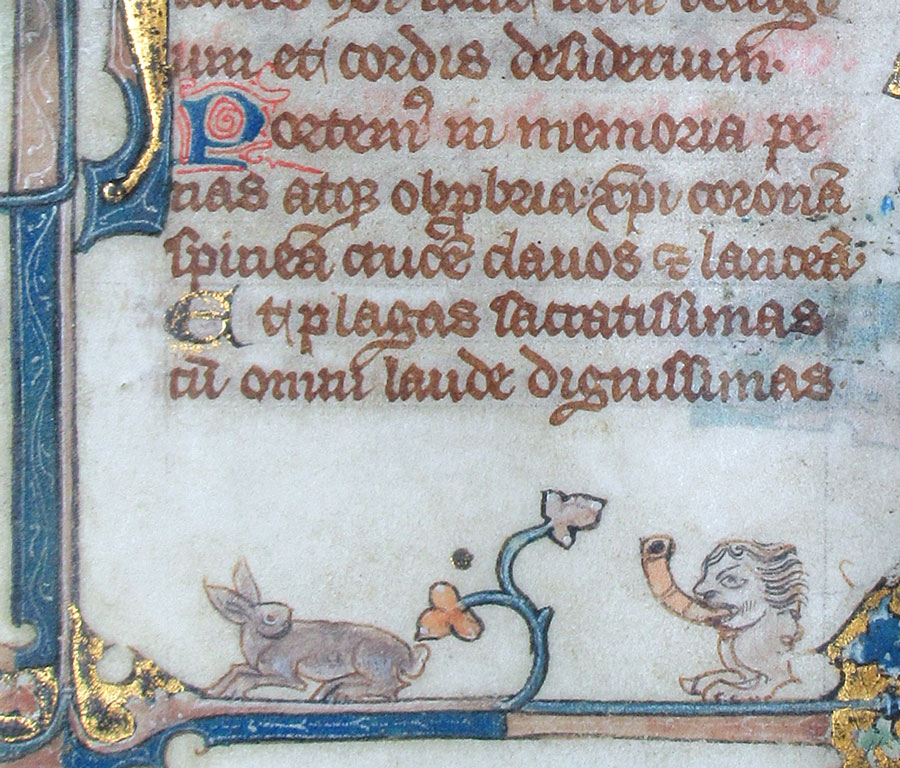 um et cordis desiderium.
Portemꝰ in memoria pe
nas atqꝫ obꝓbria: xp̄i coronā
spineā crucē clauos ⁊ lanceā.
Et plagas sacratissimas
cū omni laude dignissimas.